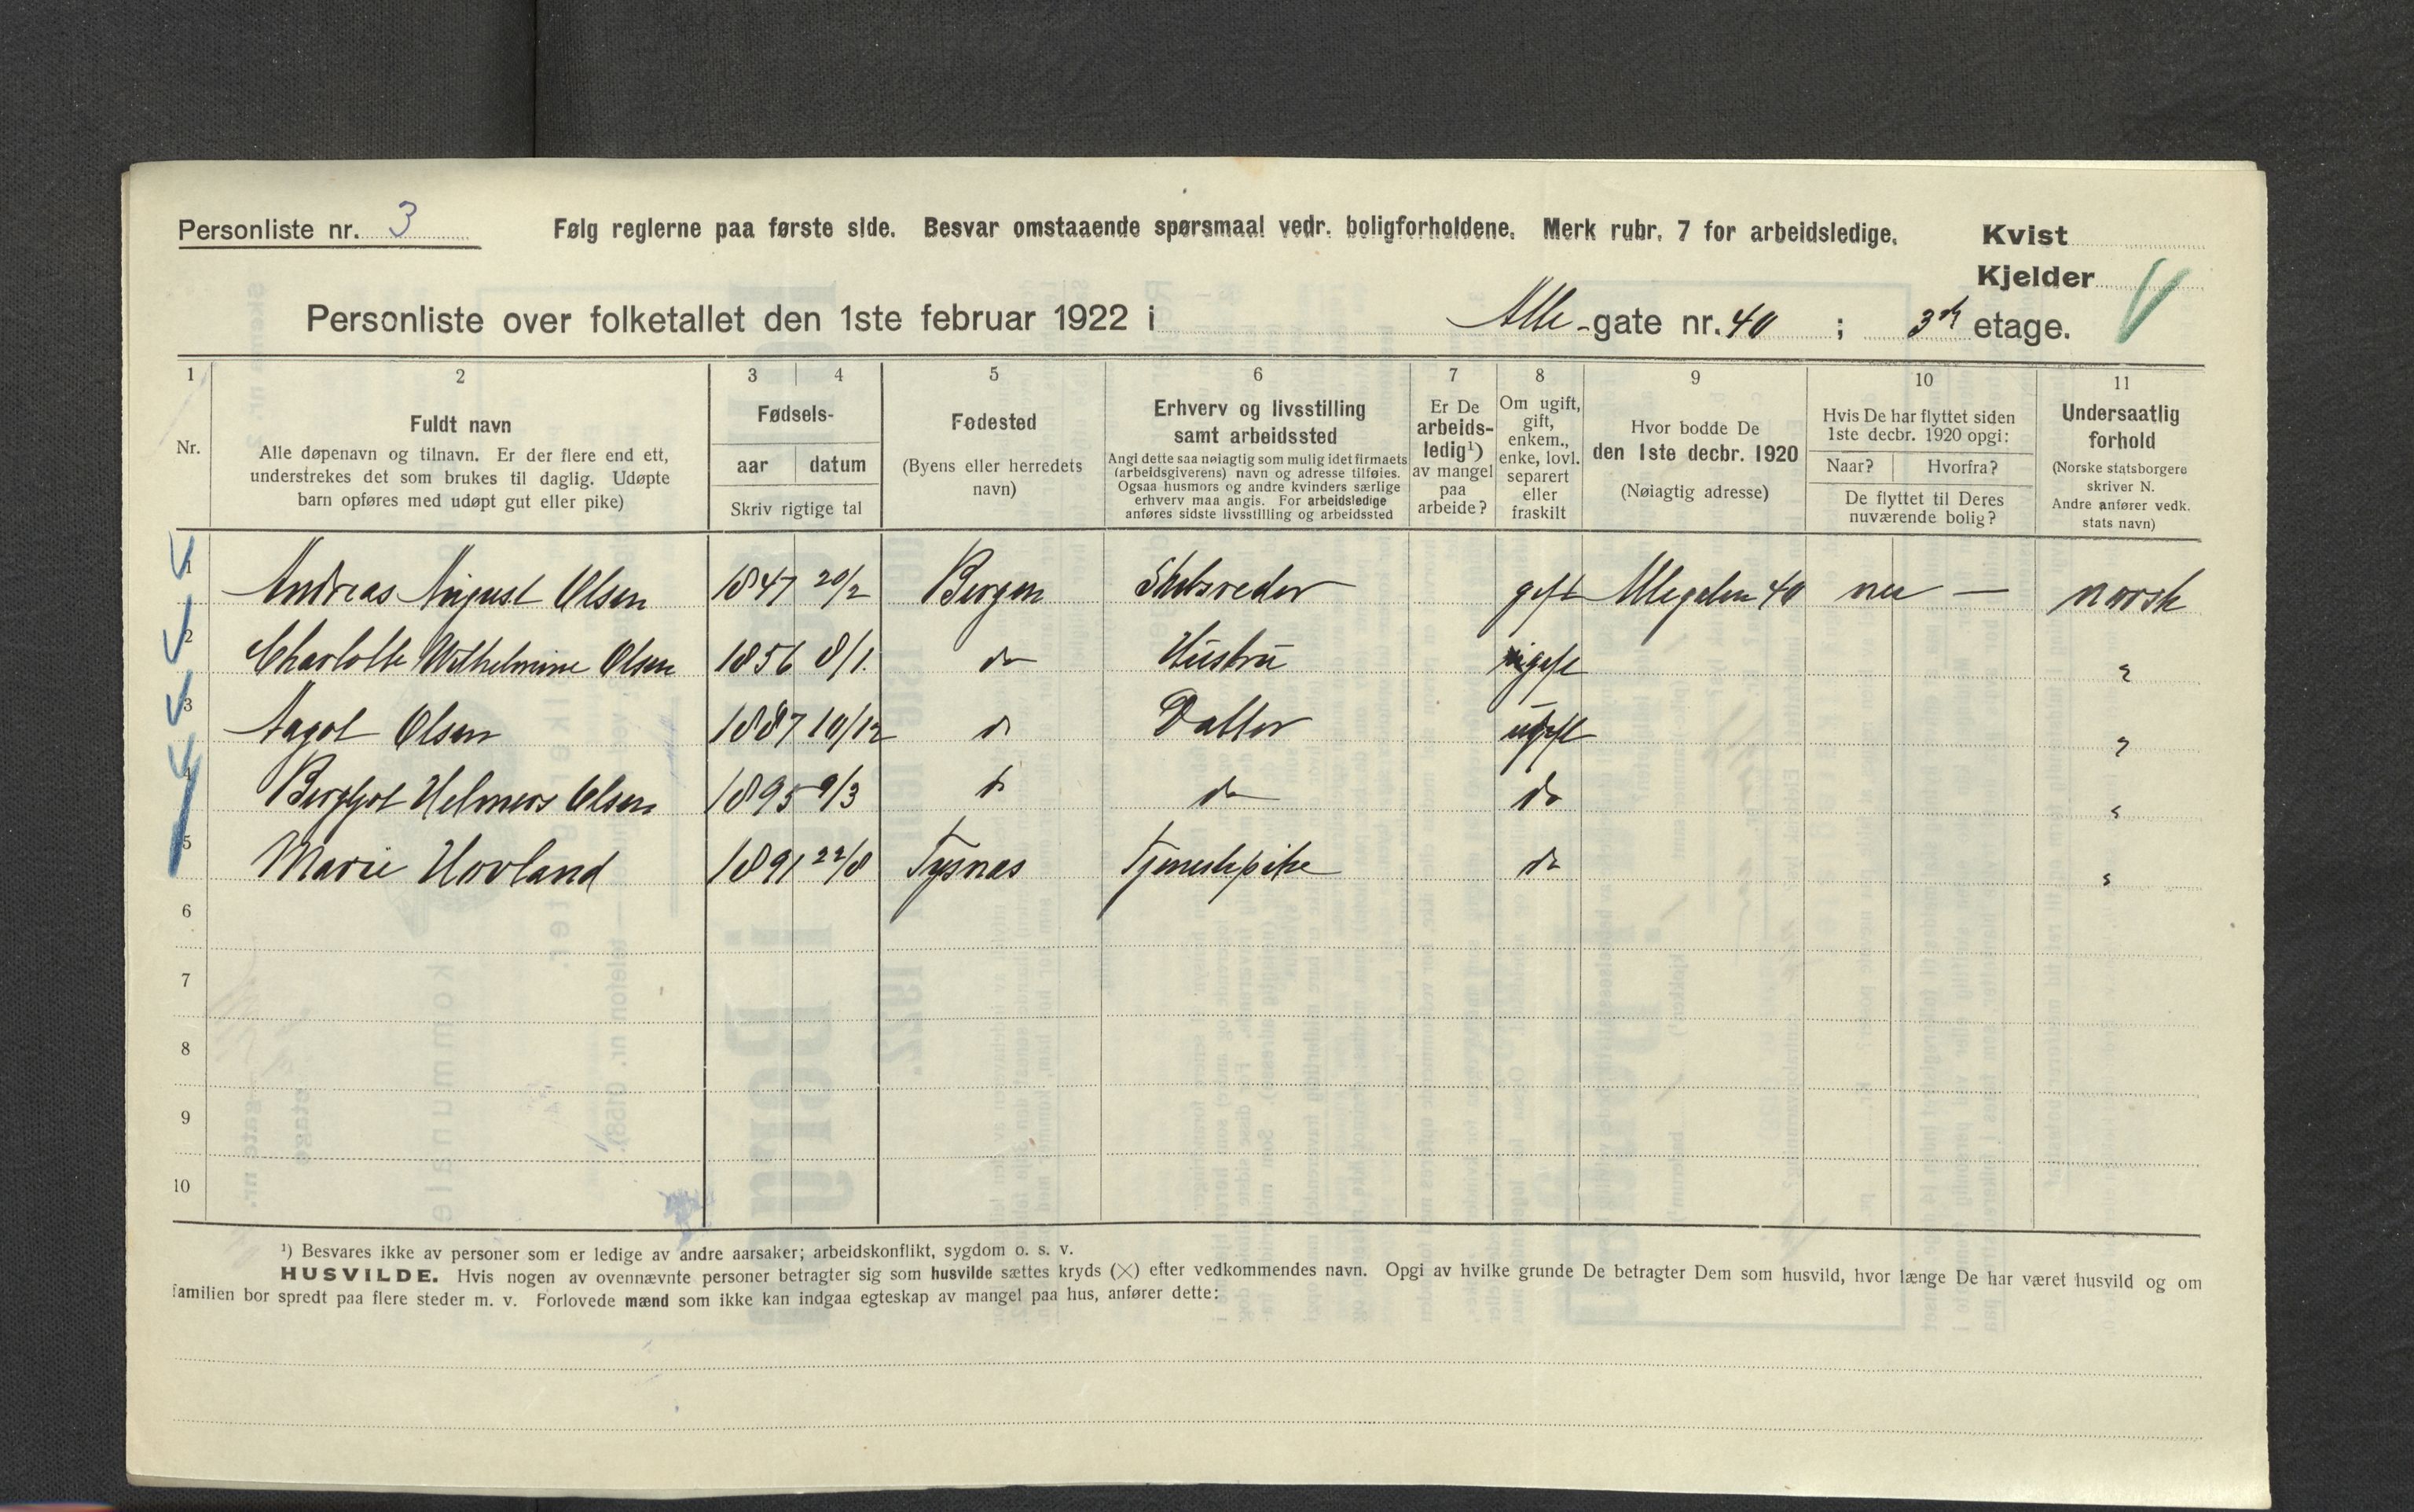 Personliste nr. 3 Følg reglerne paa første side. Besvar omstaaende spørsmaal vedr. boligforholdene. Merk rubr. 7 for arbeidsledige. Kvist
Kjelder
Personliste over folketallet den 1ste februar 1922 i Alle-gate nr. 40 ; 3die etage.
1 2 3 4 5 6 7 8 9 10 11
Nr.
Fuldt navn
Alle døpenavn og tilnavn. Er der flere end ett,
understrekes det som brukes til daglig. Udøpte
barn opføres med udøpt gut eller pike)
Fødsels-
aar datum
Skriv rigtige tal
Fødested
(Byens eller herredets
navn)
Erhverv og livsstilling
samt arbeidssted
Angi dette saa nøiagtig som mulig idet firmaets
(arbeidsgiverens) navn og adresse tilføies.
Ogsaa husmors og andre kvinders særlige
erhverv maa angis. For arbeidsledige
anføres sidste livsstilling og arbeidssted
Er De
arbeids-
ledig¹)
av mangel
paa
arbeide?
Om ugift,
gift,
enkem.,
enke, lovl.
separert
eller
fraskilt
Hvor bodde De
den 1ste decbr. 1920
(Nøiagtig adresse)
Hvis De har flyttet siden
1ste decbr. 1920 opgi:
Naar? Hvorfra?
De flyttet til Deres
nuværende bolig?
Undersaatlig
forhold
(Norske statsborgere
skriver N.
Andre anfører vedk.
stats navn)
1 Andreas August Olsen 1847 20/2 Bergen Skibsreder gift Allegaten 40 nei — norsk
2 Charlotte Wilhelmine Olsen 1856 8/1. do Hustru gift "
3 Aagot Olsen 1887 10/12 do Datter ugift "
4 Bergljot Helmers Olsen 1895 9/3 do do do "
5 Marie Hovland 1891 22/8 Tysnæs Tjenestepike do "
6
7
8
9
10
¹) Besvares ikke av personer som er ledige av andre aarsaker; arbeidskonflikt, sygdom o. s. v.
HUSVILDE. Hvis nogen av ovennævnte personer betragter sig som husvilde sættes kryds (×) efter vedkommendes navn. Opgi av hvilke grunde De betragter Dem som husvild, hvor længe De har været husvild og om
familien bor spredt paa flere steder m. v. Forlovede mænd som ikke kan indgaa egteskap av mangel paa hus, anfører dette: